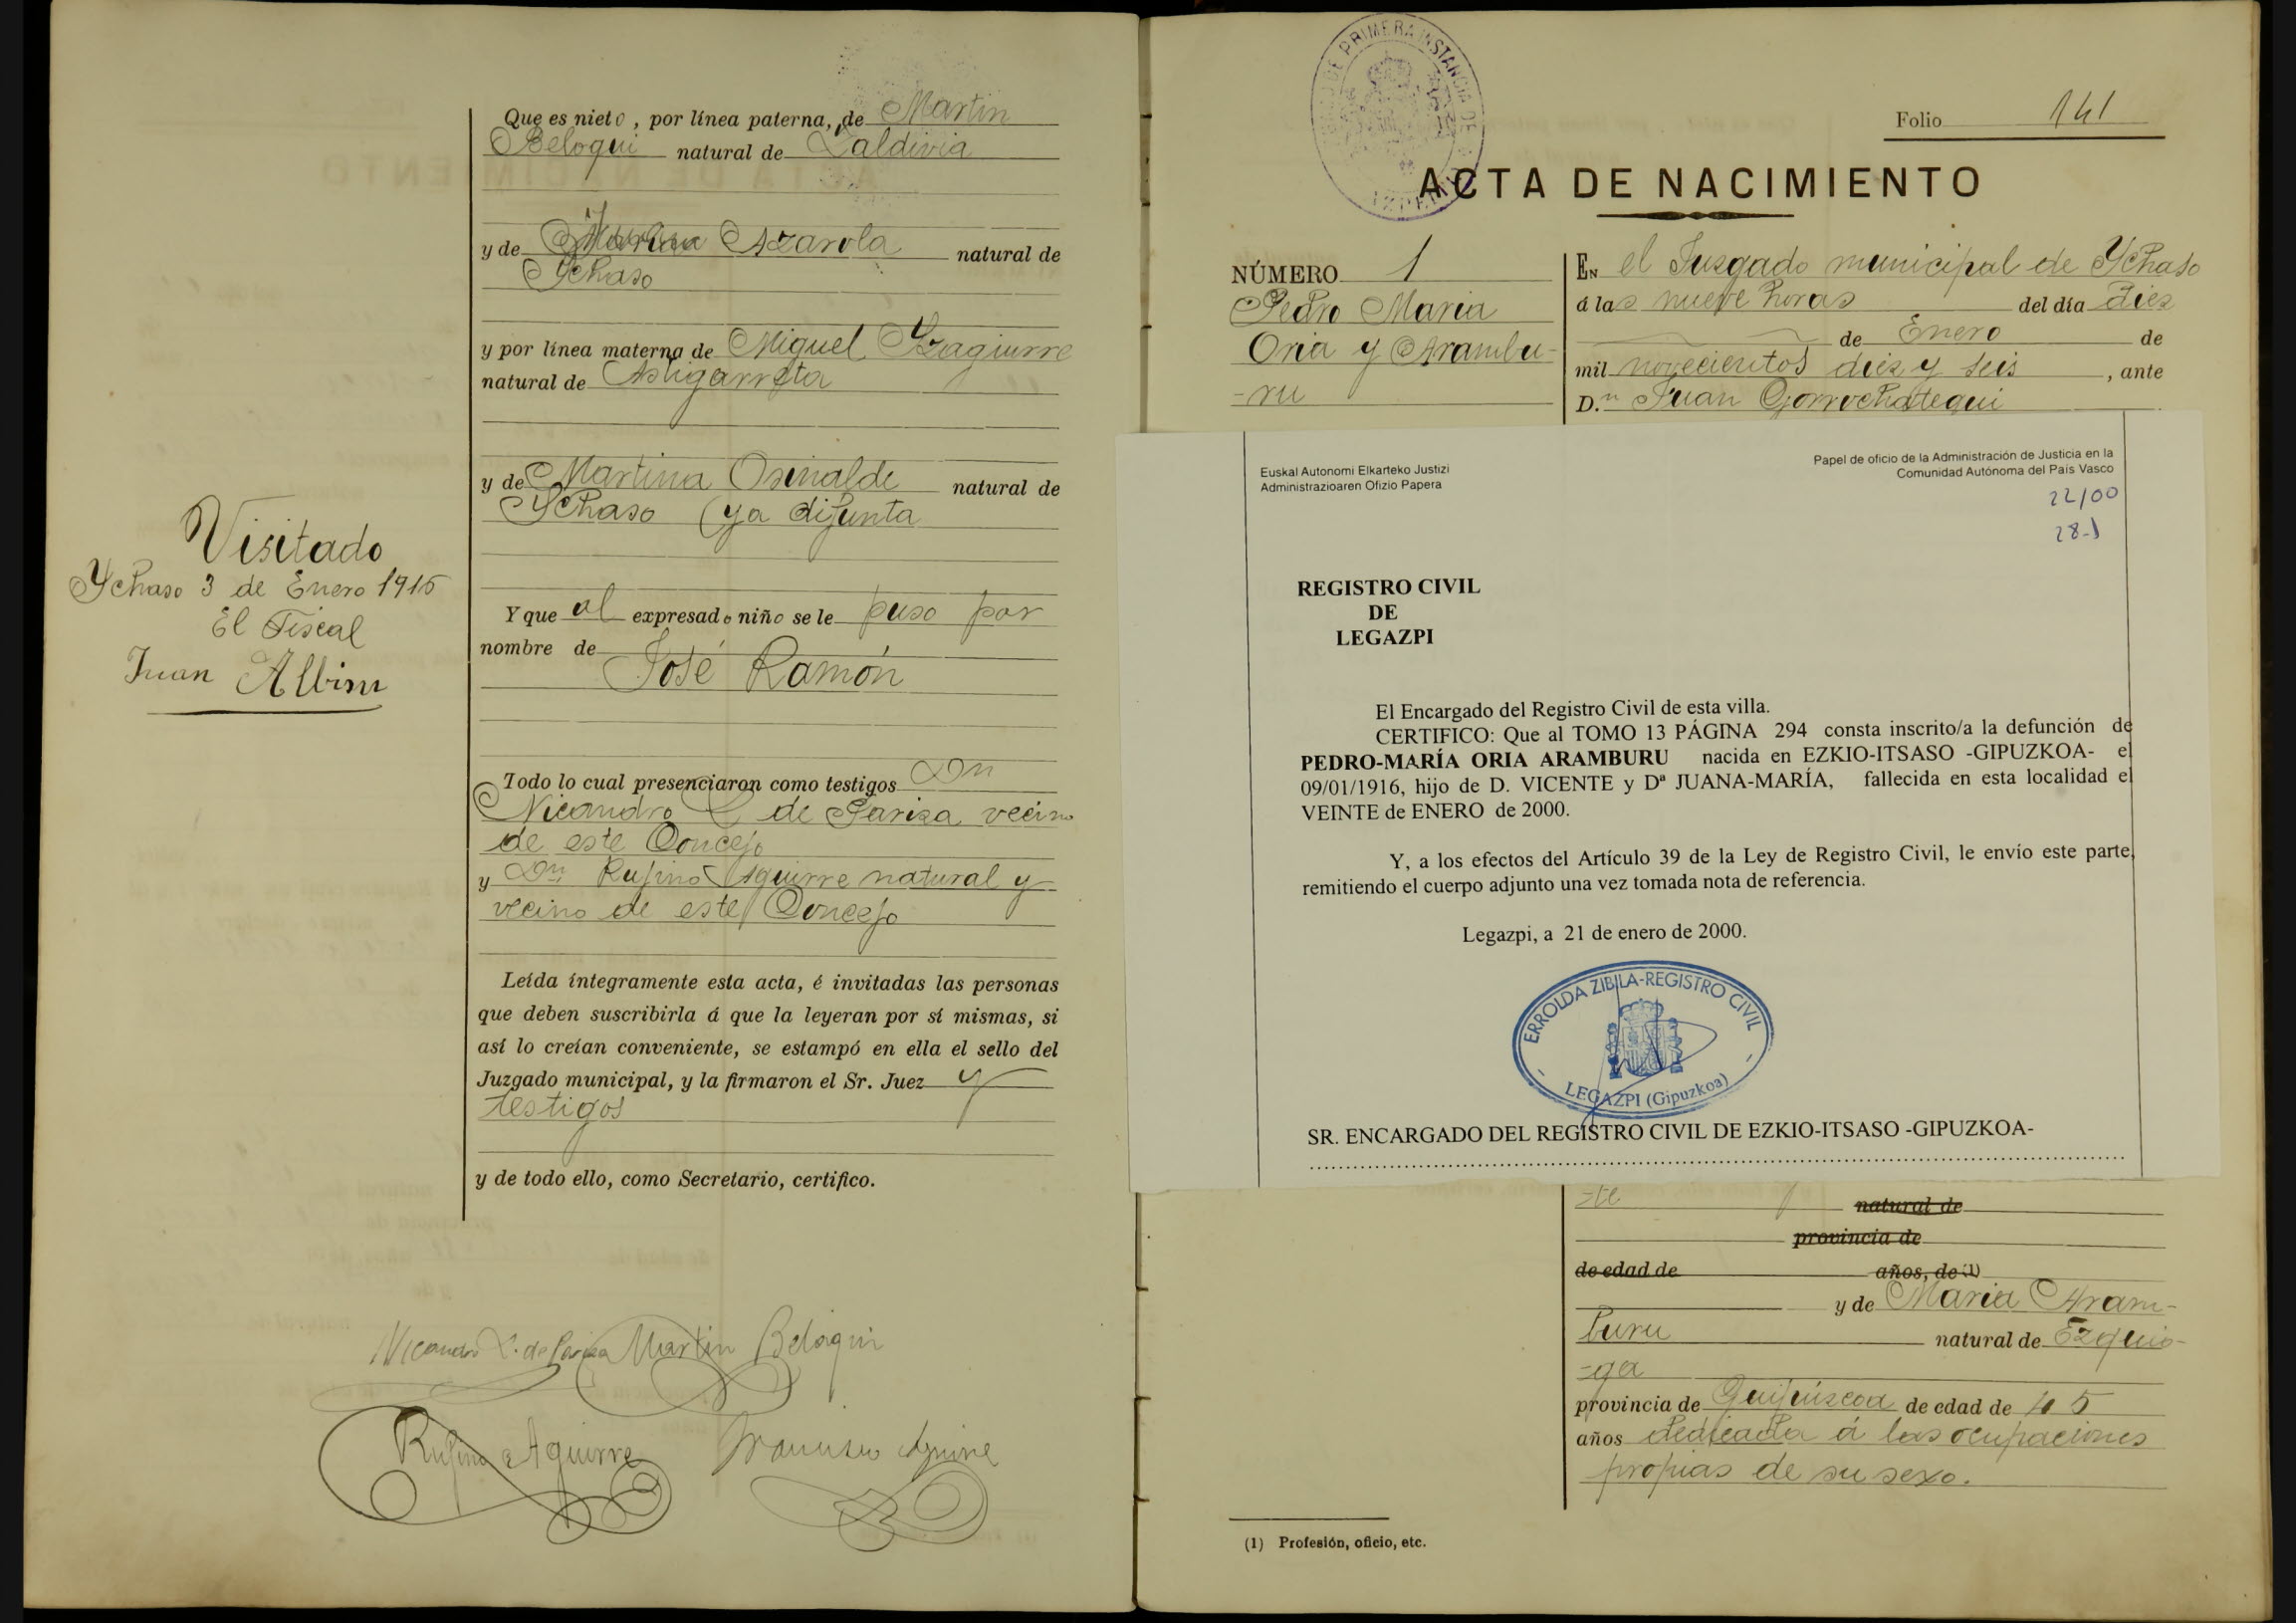 Que es nieto, por línea paterna, de Martin
Beloqui natural de Zaldivia
y de Azarola natural de
Ychaso
y por línea materna de Miguel Yzaguirre
natural de Astigarreta
y de Martina Osinalde natural de
Ychaso (ya difunta
Y que al expresado niño se le puso por
nombre de
José Ramón
Todo lo cual presenciaron como testigos Dn
Nicandro L de Pariza vecino
de este Concejo
y Dn Rufino Aguirre natural y
vecino de este Concejo
Leída íntegramente esta acta, é invitadas las personas
que deben suscribirla á que la leyeran por sí mismas, si
así lo creían conveniente, se estampó en ella el sello del
Juzgado municipal, y la firmaron el Sr. Juez y
testigos
y de todo ello, como Secretario, certifico.
Nicandro L. de Pariza Martin Beloqui
Rufino Aguirre Francisco Aguirre
Visitado
Ychaso 3 de Enero 1916
El Fiscal
Juan Albisu
PRIMERA INSTANCIA DE
Folio 141
ACTA DE NACIMIENTO
NÚMERO 1
Pedro Maria
Oria y Arambu-
-ru
EN el Juzgado municipal de Ychaso
á las nueve horas del día diez
de Enero de
mil novecientos diez y seis, ante
D.n Juan Gorrochategui
Euskal Autonomi Elkarteko Justizi
Administrazioaren Ofizio Papera
Papel de oficio de la Administración de Justicia en la
Comunidad Autónoma del País Vasco
22/00
28-1
REGISTRO CIVIL
DE
LEGAZPI
El Encargado del Registro Civil de esta villa.
CERTIFICO: Que al TOMO 13 PÁGINA 294 consta inscrito/a la defunción de
PEDRO-MARÍA ORIA ARAMBURU nacida en EZKIO-ITSASO -GIPUZKOA- el
09/01/1916, hijo de D. VICENTE y Dª JUANA-MARÍA, fallecida en esta localidad el
VEINTE de ENERO de 2000.
Y, a los efectos del Artículo 39 de la Ley de Registro Civil, le envío este parte,
remitiendo el cuerpo adjunto una vez tomada nota de referencia.
Legazpi, a 21 de enero de 2000.
ERROLDA ZIBILA-REGISTRO CIVIL
- LEGAZPI (Gipuzkoa) -
SR. ENCARGADO DEL REGISTRO CIVIL DE EZKIO-ITSASO -GIPUZKOA-
-te natural de
provincia de
de edad de años, de (1)
y de Maria Aram-
buru natural de Ezquio-
-ga
provincia de Guipúzcoa de edad de 45
años dedicada á las ocupaciones
propias de su sexo.
(1) Profesión, oficio, etc.